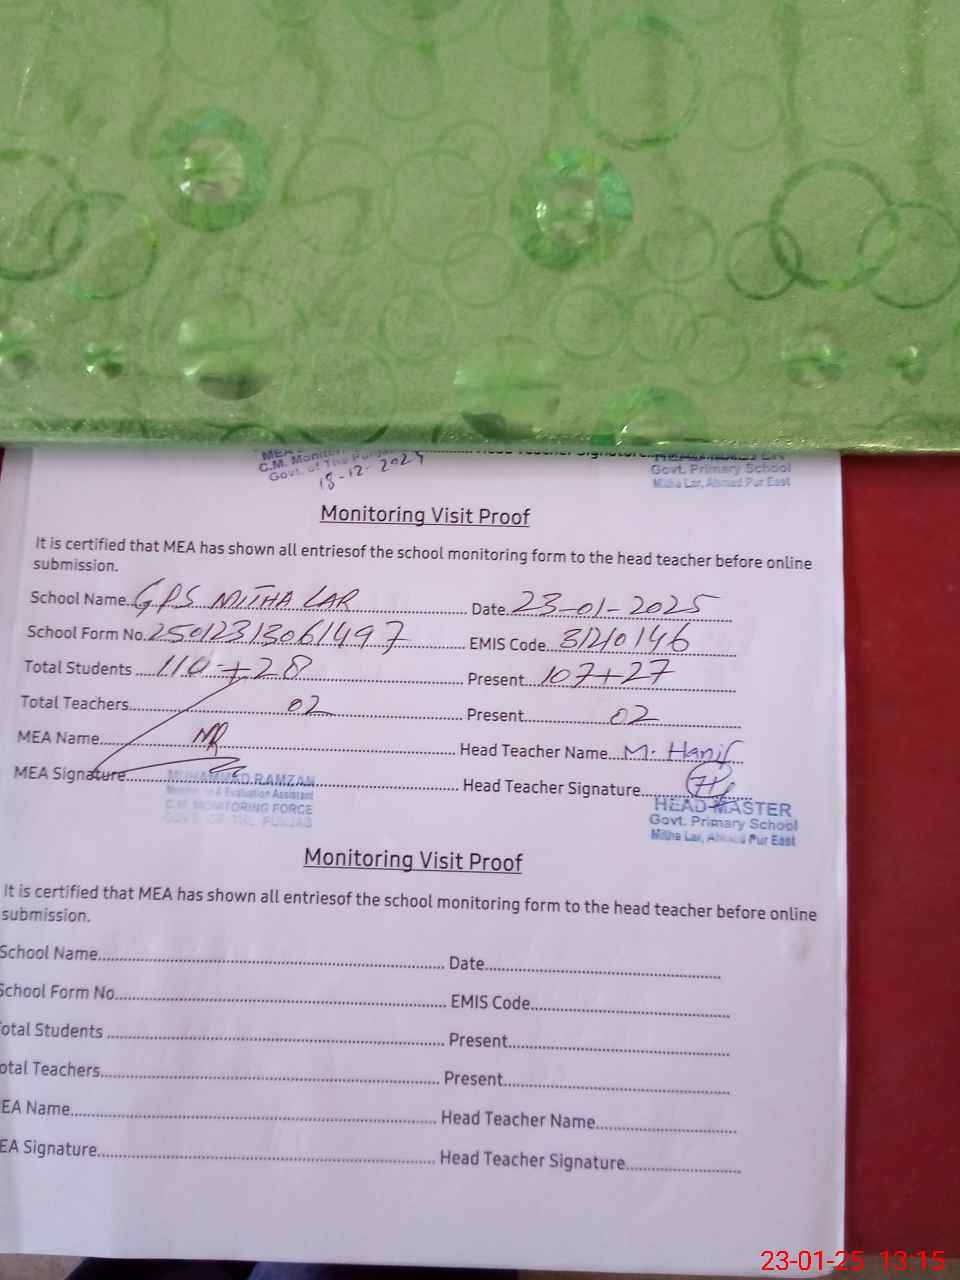 C.M. Monitor
Govt. of The Punjab
18-12-2024
Govt. Primary School
Mitha Lar, Ahmed Pur East
Monitoring Visit Proof
It is certified that MEA has shown all entriesof the school monitoring form to the head teacher before online
submission.
School Name GPS MITHA LAR Date 23-01-2025
School Form No. 25012313061497 EMIS Code 31210146
Total Students 110+28 Present 107+27
Total Teachers 02 Present 02
MEA Name MR Head Teacher Name M. Hanif
MEA Signature Head Teacher Signature
MUHAMMAD RAMZAN
Monitoring & Evaluation Assistant
C.M. MONITORING FORCE
GOVT. OF THE PUNJAB
HEAD MASTER
Govt. Primary School
Mitha Lar, Ahmed Pur East
Monitoring Visit Proof
It is certified that MEA has shown all entriesof the school monitoring form to the head teacher before online
submission.
School Name Date
School Form No. EMIS Code
otal Students Present
otal Teachers Present
EA Name Head Teacher Name
EA Signature Head Teacher Signature
23-01-25 13:15